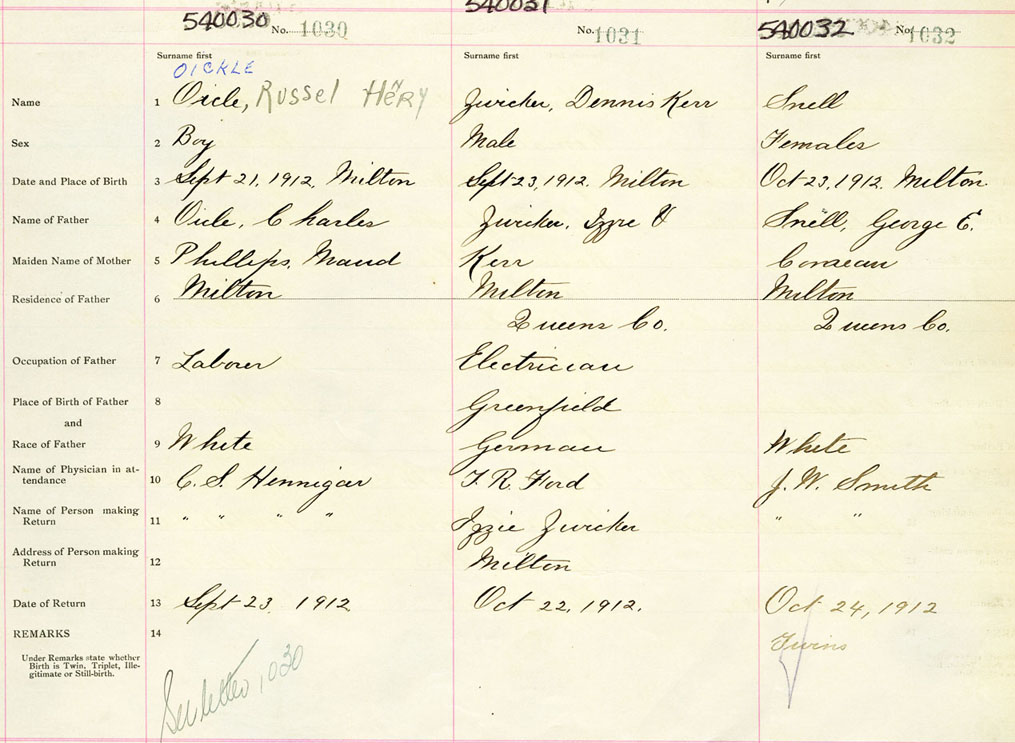 540030 No. 1030 540031 No. 1031 540032 No. 1032
Surname first Surname first Surname first
OICKLE
Name 1 Oicle, Russel Hēry Zwicker, Dennis Kerr Snell
Sex 2 Boy Male Females
Date and Place of Birth 3 Sept 21, 1912, Milton Sept 23, 1912. Milton Oct 23, 1912. Milton
Name of Father 4 Oicle, Charles Zwicker, Snell, George E.
Maiden Name of Mother 5 Phillips, Maud Kerr
Residence of Father 6 Milton Milton Milton
Queens Co. Queens Co.
Occupation of Father 7 Laborer Electrician
Place of Birth of Father 8 Greenfield
and
Race of Father 9 White German White
Name of Physician in at-
tendance 10 C. S. Hennigar T. R. Ford J. W. Smith
Name of Person making
Return 11 " " " " Izzie Zwicker " "
Address of Person making
Return 12 Milton
Date of Return 13 Sept 23, 1912 Oct 22, 1912. Oct 24, 1912
REMARKS 14 Twins
Under Remarks state whether
Birth is Twin, Triplet, Ille-
gitimate or Still-birth.
See letter 1030